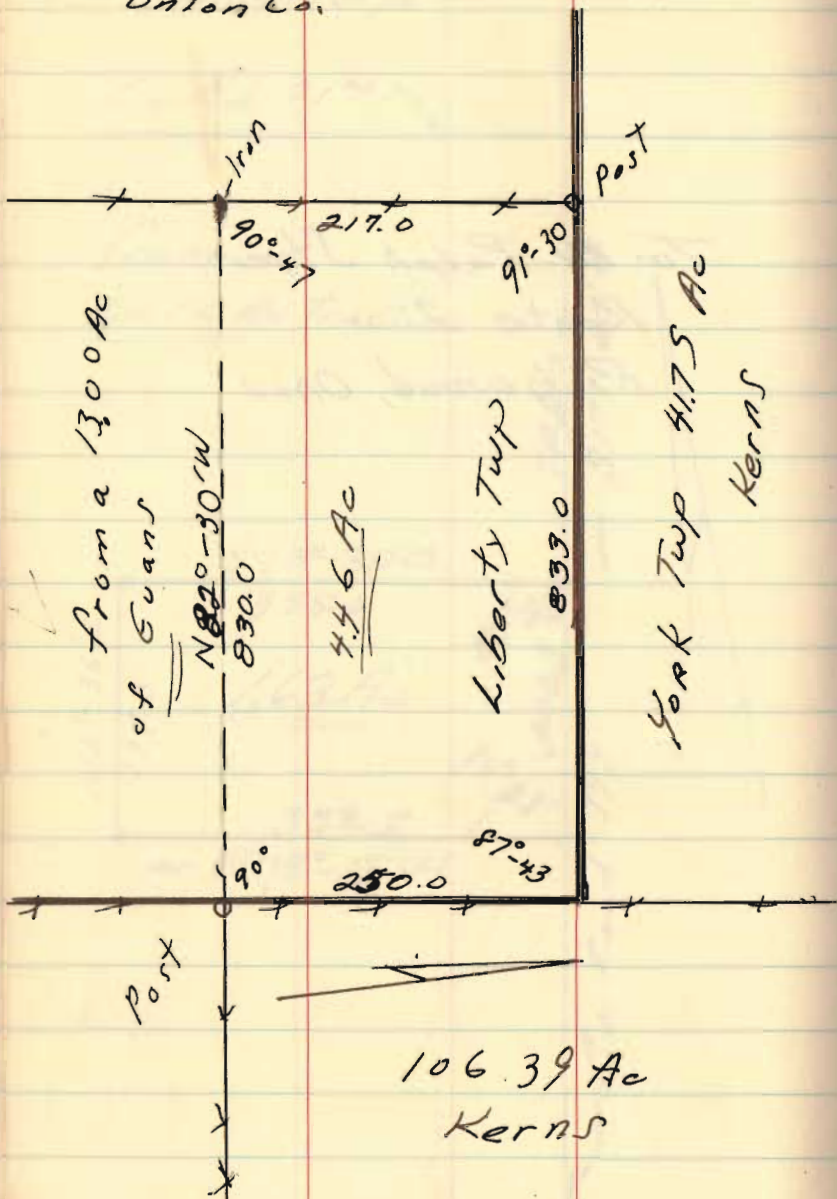 Union Co.
Iron
Post
217.0
90°-47
91°-30
from a 13.00 Ac
of Evans
N82°-30'W
830.0
4.46 Ac
Liberty Twp
833.0
York Twp 41.75 Ac
Kerns
90°
250.0
87°-43
Post
106.39 Ac
Kerns